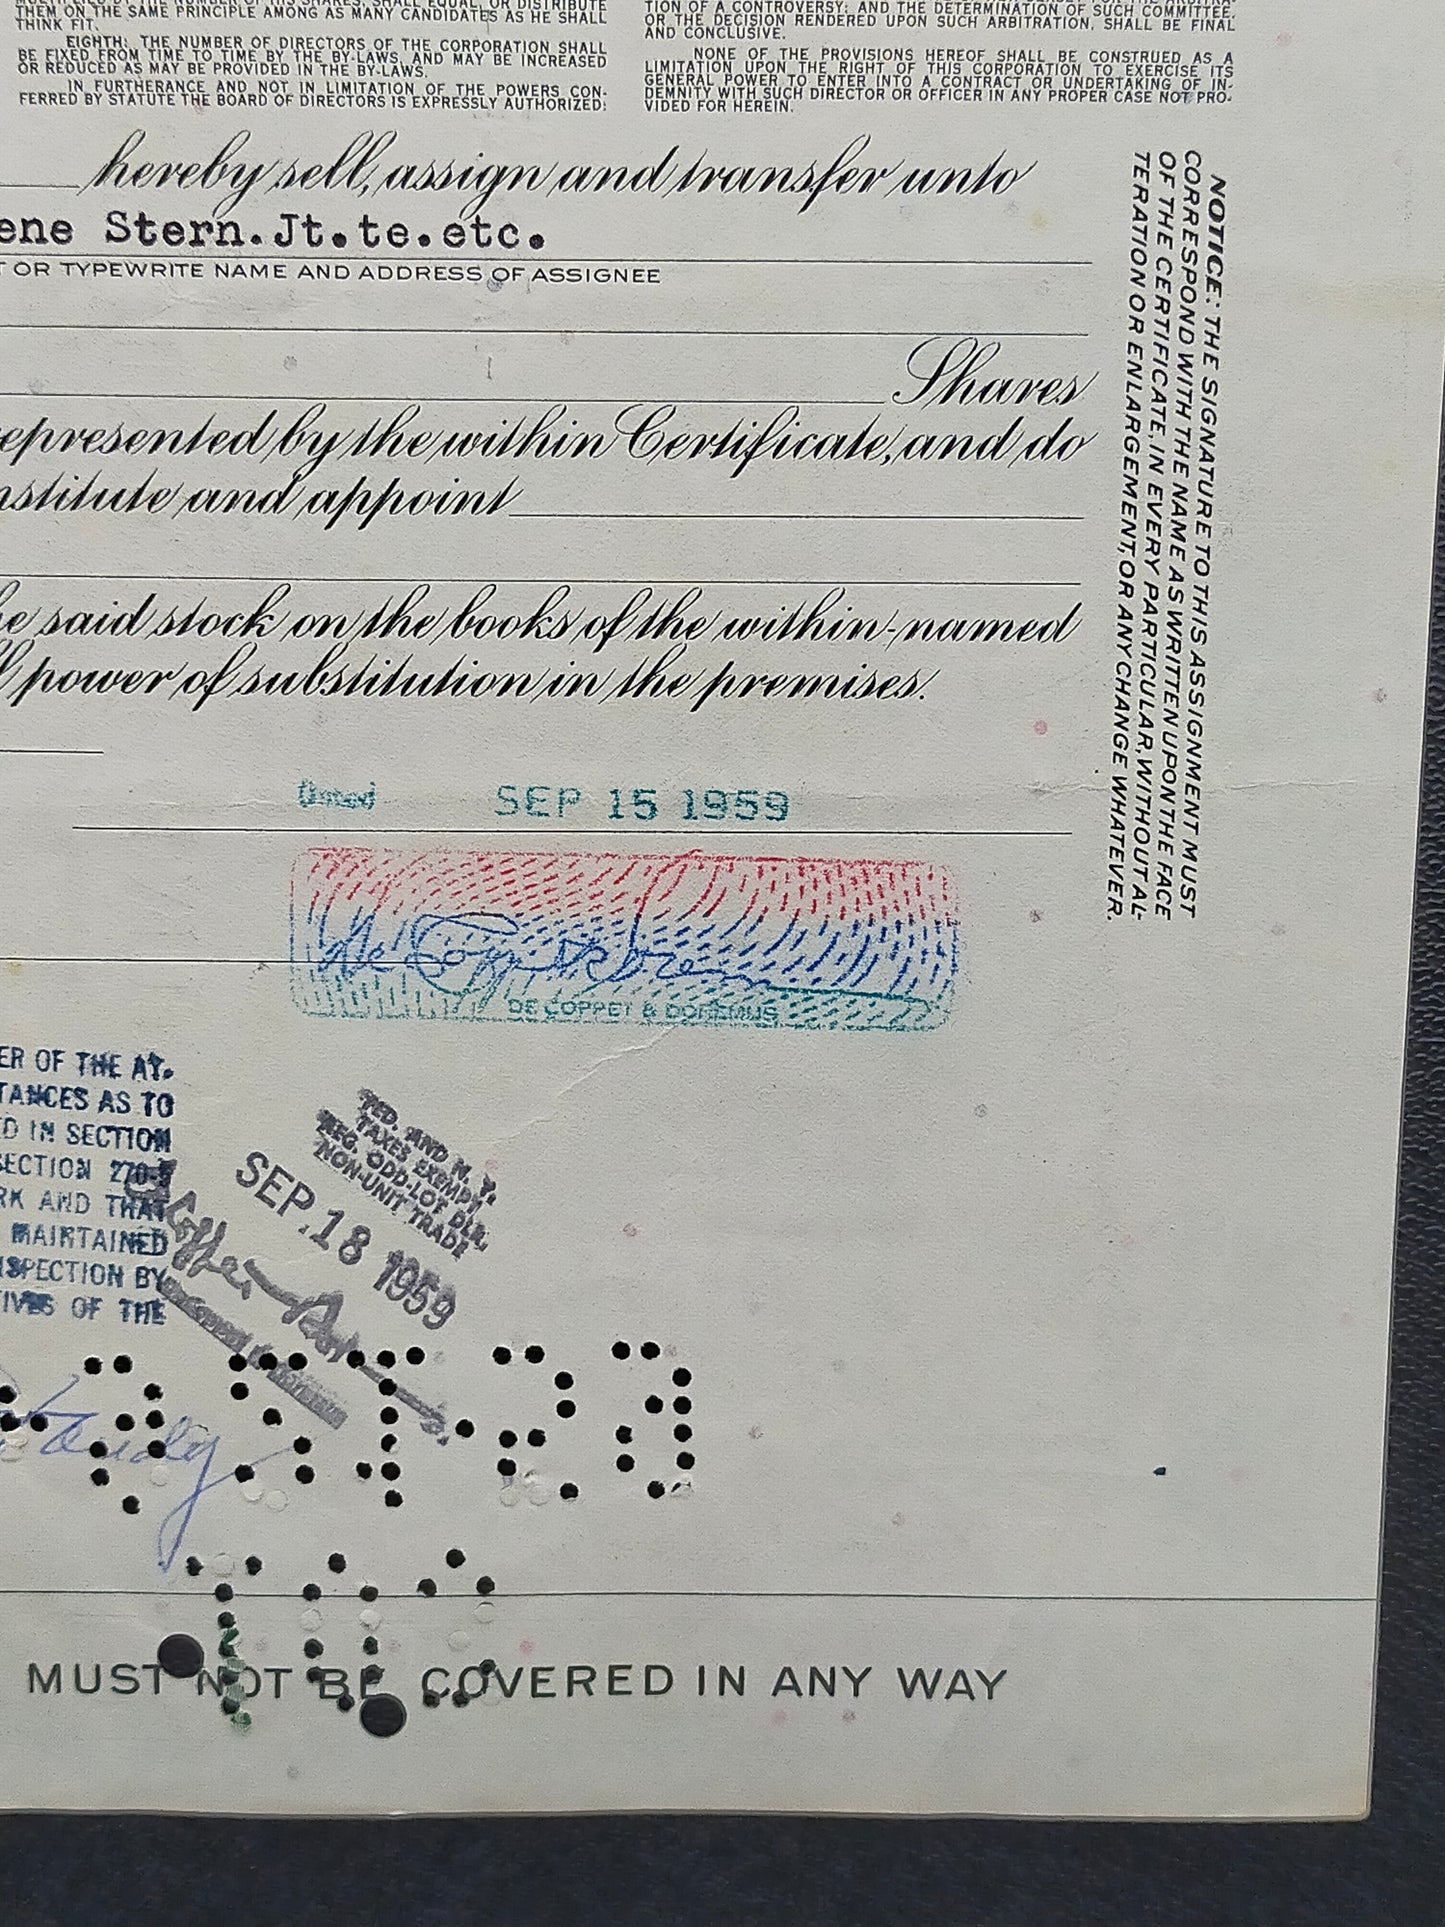 THEM ON THE SAME PRINCIPLE AMONG AS MANY CANDIDATES AS HE SHALL
THINK FIT.
EIGHTH: THE NUMBER OF DIRECTORS OF THE CORPORATION SHALL
BE FIXED FROM TIME TO TIME BY THE BY-LAWS, AND MAY BE INCREASED
OR REDUCED AS MAY BE PROVIDED IN THE BY-LAWS.
IN FURTHERANCE AND NOT IN LIMITATION OF THE POWERS CON-
FERRED BY STATUTE THE BOARD OF DIRECTORS IS EXPRESSLY AUTHORIZED:
TION OF A CONTROVERSY; AND THE DETERMINATION OF SUCH COMMITTEE,
OR THE DECISION RENDERED UPON SUCH ARBITRATION, SHALL BE FINAL
AND CONCLUSIVE.
NONE OF THE PROVISIONS HEREOF SHALL BE CONSTRUED AS A
LIMITATION UPON THE RIGHT OF THIS CORPORATION TO EXERCISE ITS
GENERAL POWER TO ENTER INTO A CONTRACT OR UNDERTAKING OF IN-
DEMNITY WITH SUCH DIRECTOR OR OFFICER IN ANY PROPER CASE NOT PRO-
VIDED FOR HEREIN.
hereby sell, assign and transfer unto
ene Stern.Jt.te.etc.
T OR TYPEWRITE NAME AND ADDRESS OF ASSIGNEE
Shares
represented by the within Certificate, and do
nstitute and appoint
he said stock on the books of the within-named
ll power of substitution in the premises.
NOTICE: THE SIGNATURE TO THIS ASSIGNMENT MUST
CORRESPOND WITH THE NAME AS WRITTEN UPON THE FACE
OF THE CERTIFICATE, IN EVERY PARTICULAR, WITHOUT AL-
TERATION OR ENLARGEMENT, OR ANY CHANGE WHATEVER.
Dated SEP 15 1959
DE COPPET & DOREMUS
ER OF THE AT.
TANCES AS TO
ED IN SECTION
SECTION 270-5
RK AND THAT
MAINTAINED
NSPECTION BY
TIVES OF THE
FED. AND N. Y.
TAXES EXEMPT
REG. ODD-LOT DLR.
NON-UNIT TRADE
SEP. 18 1959
MUST NOT BE COVERED IN ANY WAY